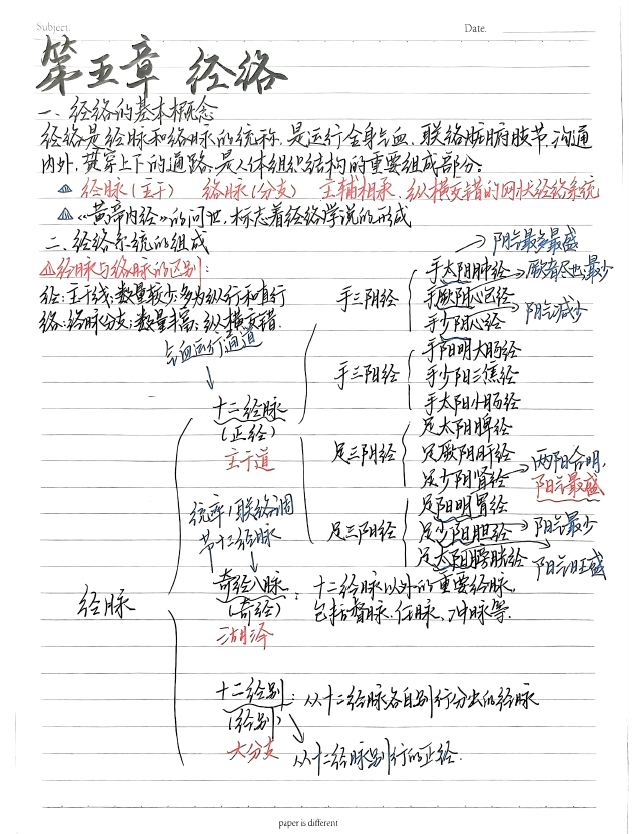 Subject:
Date.
第五章 经络
一、经络的基本概念
经络是经脉和络脉的统称,是运行全身气血,联络脏腑肢节,沟通
内外,贯穿上下的通路,是人体组织结构的重要组成部分。
经脉(主干) 络脉(分支) 主辅相承,纵横交错的网状经络系统
《黄帝内经》的问世,标志着经络学说的形成
二、经络系统的组成
经脉与络脉的区别:
经:主干线;数量较少;多为纵行和直行
络:络脉分支;数量丰富;纵横交错.
气血运行通道
十二经脉
(正经)
主干道
手三阴经
手太阴肺经
阴气最多最盛
手厥阴心包经
厥者尽也;最少
手少阴心经
阴气减少
手三阳经
手阳明大肠经
手少阳三焦经
手太阳小肠经
足三阴经
足太阴脾经
足厥阴肝经
足少阴肾经
足三阳经
足阳明胃经
两阳合明,
阳气最盛
足少阳胆经
阳气最少
足太阳膀胱经
阳气旺盛
统率、联络、调
节十二经脉
经脉
奇经八脉
(奇经)
湖泽
:十二经脉以外的重要经脉,
包括督脉、任脉、冲脉等.
十二经别
(经别)
大分支
:从十二经脉各自别行分出的经脉
从十二经脉别行的正经.
paper is different